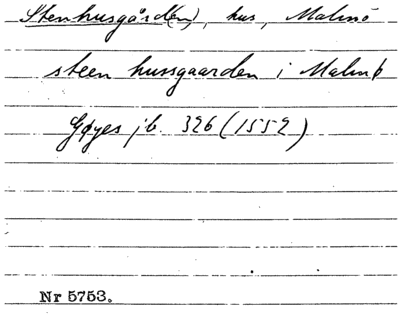 Stenhusgård(en), hus, Malmö
steen hussgaarden i Malmø
Gøyes jb. 326 (1552)
Nr 5753.